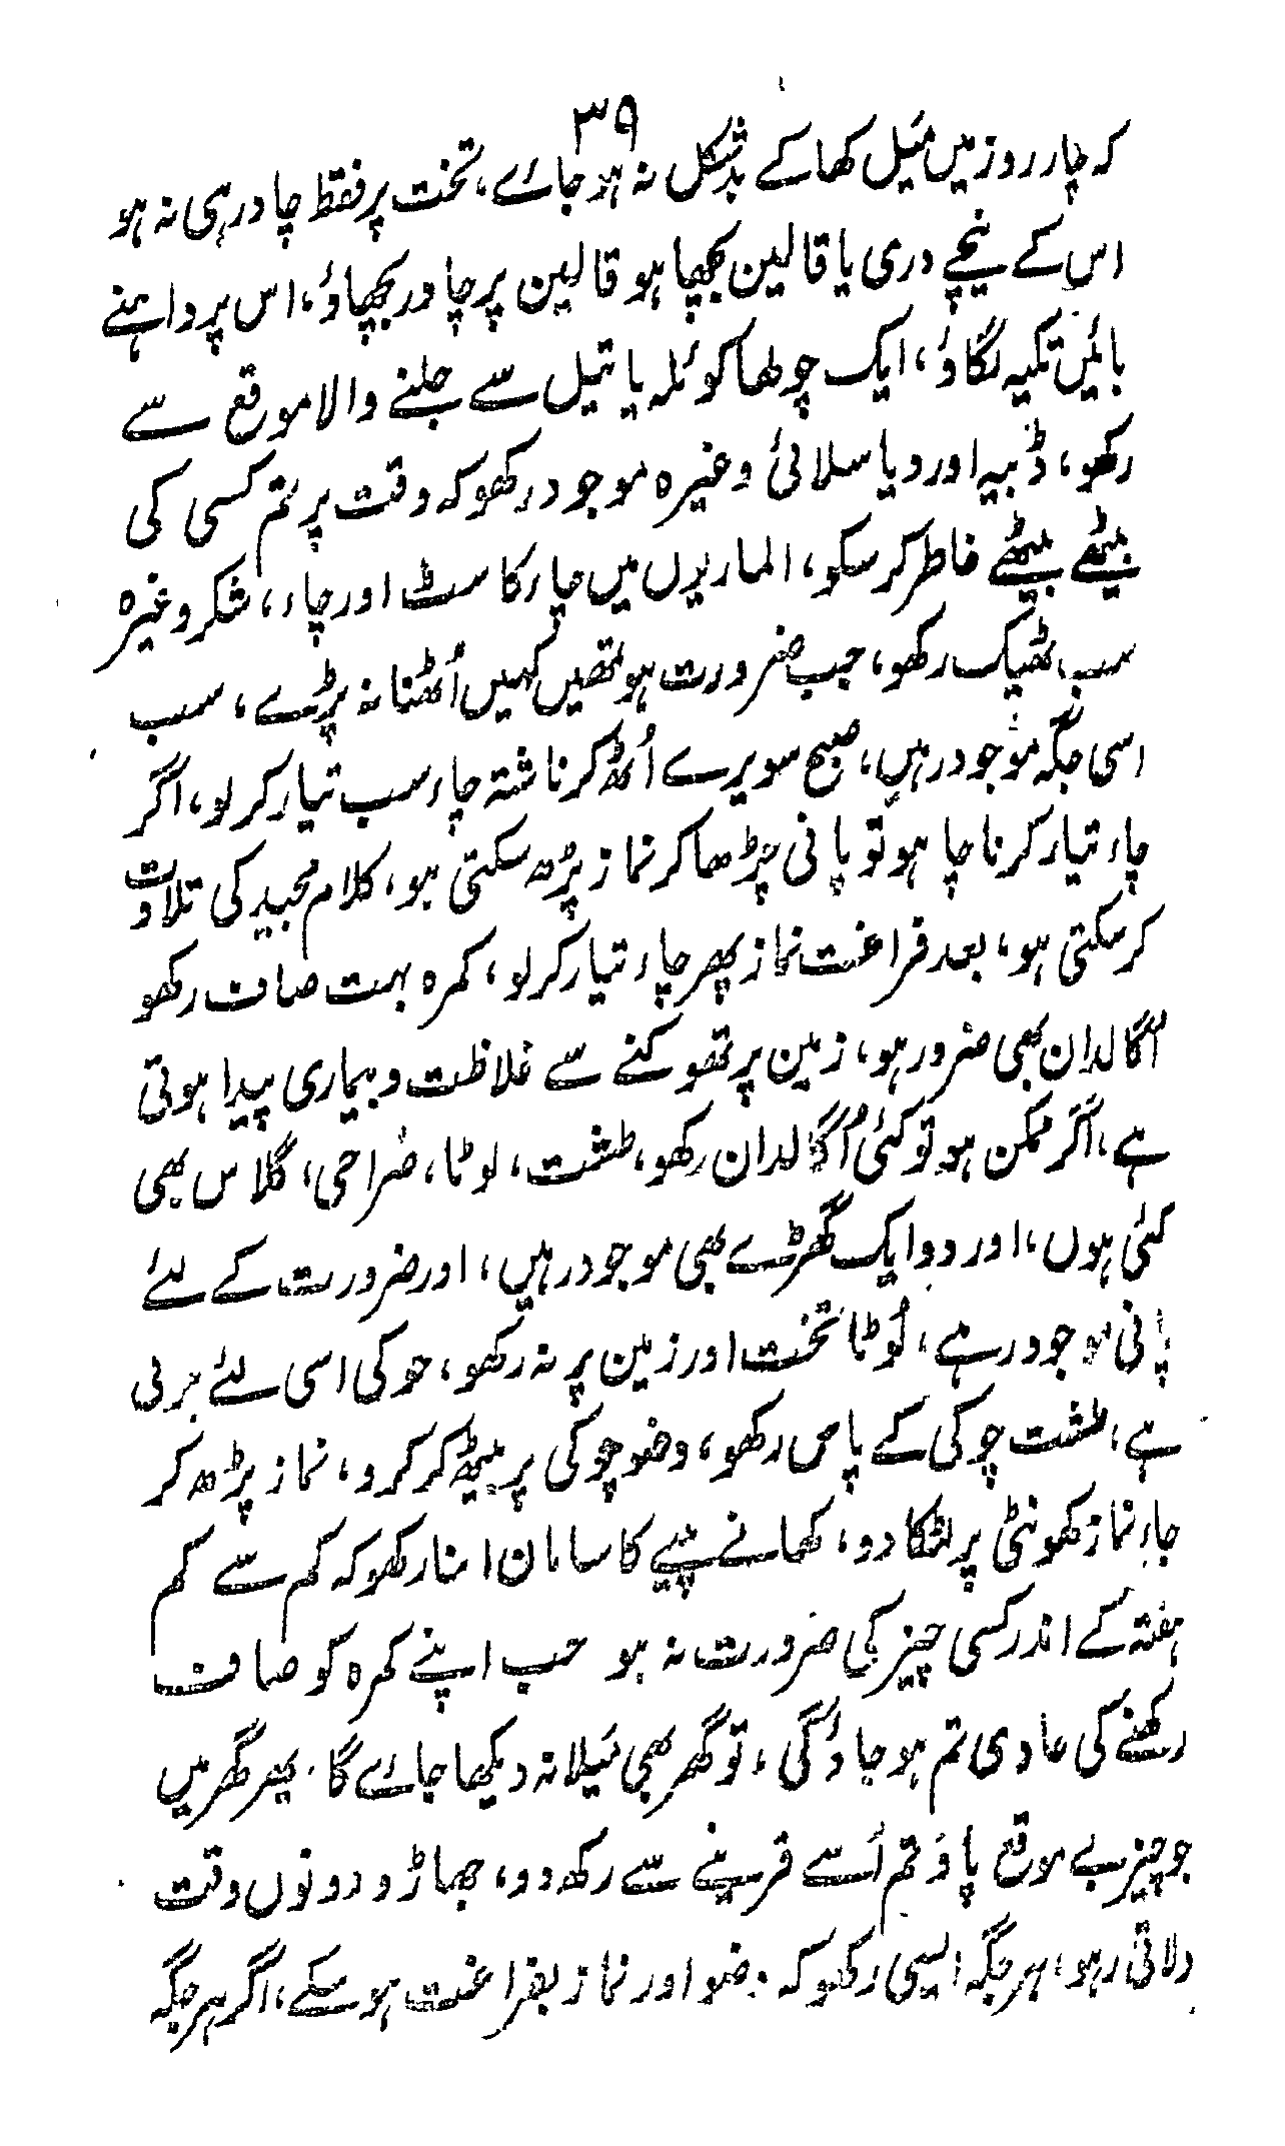 ۳۹
کہ چار روز میں میل کھا کے بدشکل نہ ہو جاے، تخت پر فقط چادر ہی نہ ہو
اس کے نیچے دری یا قالین بچھا ہو قالین پر چادر بچھاؤ، اس پر داہنے
بائیں تکیہ لگاؤ، ایک چولھا کوئلہ یا تیل سے جلنے والا موقع سے
رکھو، ڈبیہ اور دیا سلائی وغیرہ موجود رکھو کہ وقت پر تم کسی کی
بیٹھے بیٹھے خاطر کر سکو، الماریوں میں چاء کا سٹ اور چاء، شکر وغیرہ
سب ٹھیک رکھو، جب ضرورت ہو تمھیں کہیں اُٹھنا نہ پڑے، سب
اسی جگہ موجود رہیں، صبح سویرے اُٹھ کر ناشتہ چاء سب تیار کر لو، اگر
چاء تیار کرنا چاہو تو پانی چڑھا کر نماز پڑھ سکتی ہو، کلام مجید کی تلاوت
کر سکتی ہو، بعد فراغت نماز پھر چاء تیار کر لو، کمرہ بہت صاف رکھو
اُگالدان بھی ضرور ہو، زمین پر تھوکنے سے غلاظت و بیماری پیدا ہوتی
ہے، اگر ممکن ہو تو کئی اُگالدان رکھو، طشت، لوٹا، صُراحی، گلاس بھی
کئی ہوں، اور دو ایک گھڑے بھی موجود رہیں، اور ضرورت کے لئے
پانی موجود رہے، لوٹا تخت اور زمین پر نہ رکھو، چوکی اسی لئے ہوتی
ہے، طشت چوکی کے پاس رکھو، وضو چوکی پر بیٹھ کر کرو، نماز پڑھ کر
جاء نماز کھونٹی پر لٹکا دو، کھانے پینے کا سامان اتنا رکھو کہ کم سے کم
ہفتہ کے اندر کسی چیز کی ضرورت نہ ہو جب اپنے کمرہ کو صاف
رکھنے کی عادی تم ہو جاؤ گی، تو گھر بھی میلا نہ دیکھا جاے گا. پھر گھر میں
جو چیز بے موقع پاؤ تم اُسے قرینے سے رکھ دو، جھاڑو دونوں وقت
دلاتی رہو، ہر جگہ ایسی رکھو کہ وضو اور نماز بفراغت ہو سکے، اگر ہر جگہ